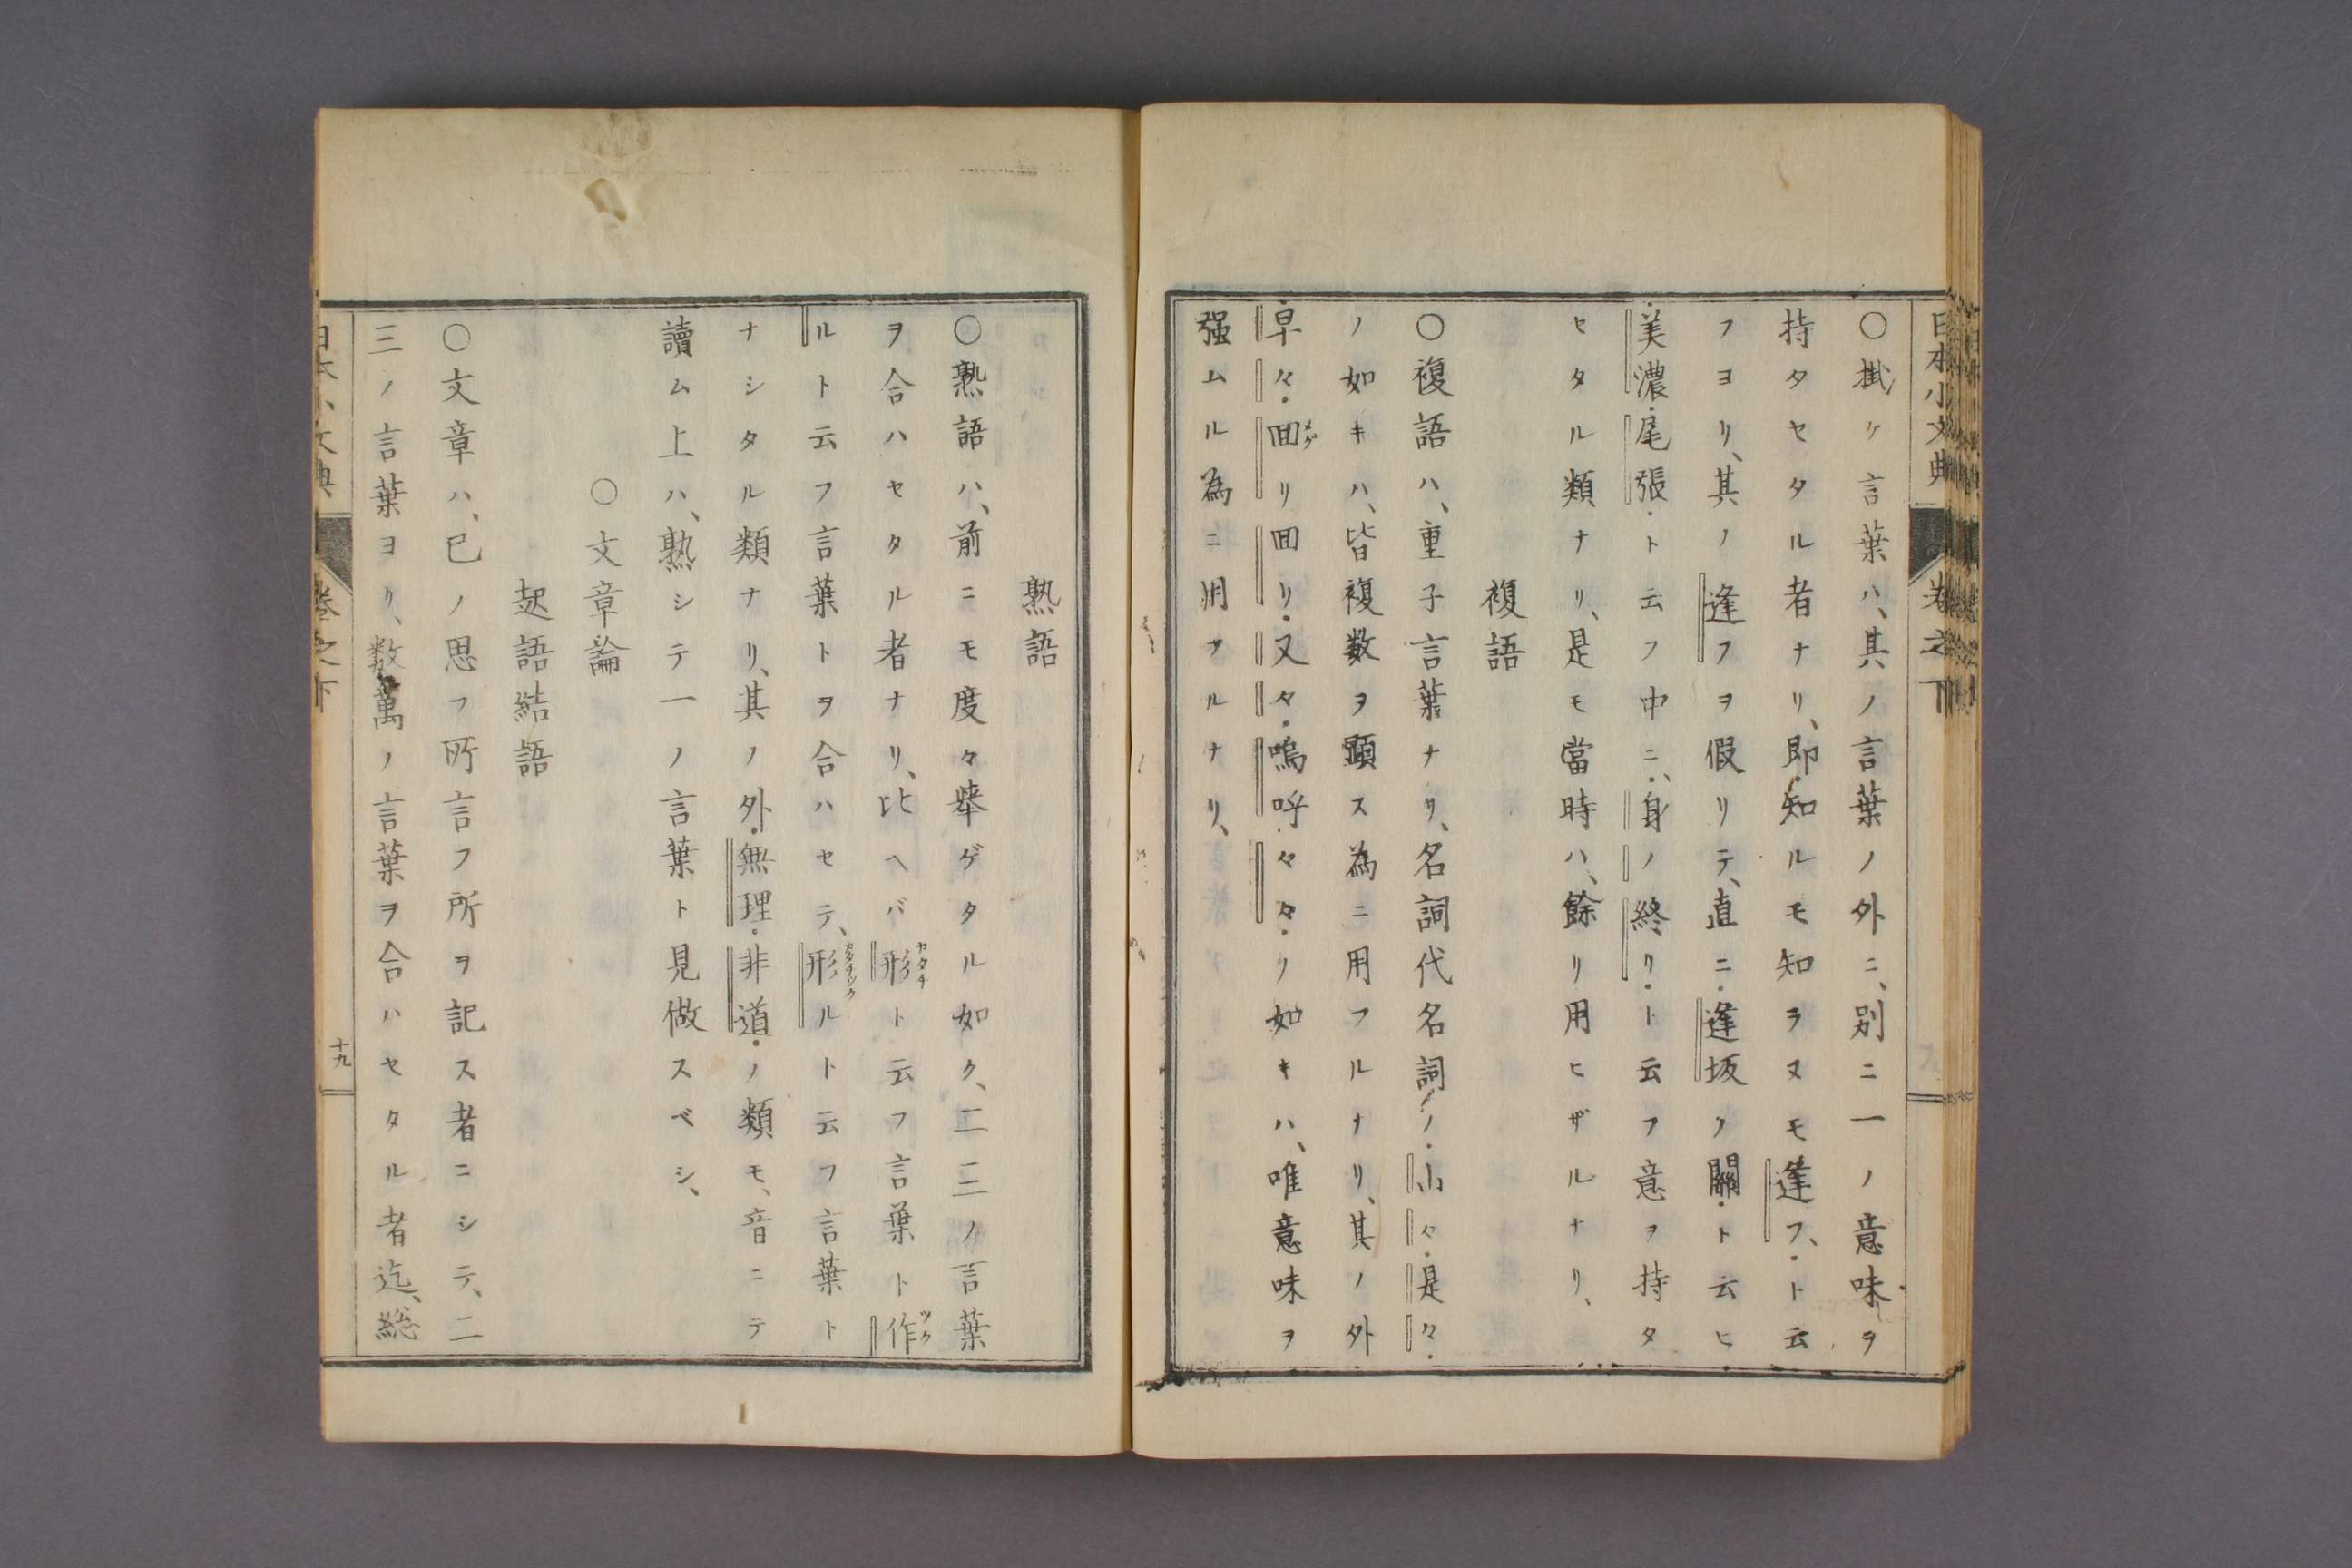 日本小文典 卷之下
〇掛ケ言葉ハ、其ノ言葉ノ外ニ、別ニ一ノ意味ヲ
持タセタル者ナリ、即・知ルモ知ラヌモ逢フ、・ト云
フヨリ、其ノ逢フヲ假リテ、直ニ・逢坂ノ關・ト云ヒ
・美濃・尾張・ト云フ中ニ、・身ノ終リ・ト云フ意ヲ持タ
セタル類ナリ、是モ當時ハ、餘リ用ヒザルナリ、
複語
〇複語ハ、重子言葉ナリ、名詞代名詞ノ・山々・是々・
ノ如キハ、皆複数ヲ顕ス為ニ用フルナリ、其ノ外・
・早々・回リ回リ・又々・嗚呼々々・ノ如キハ、唯意味ヲ
メグ
强ムル為ニ用ヲルナリ、
熟語
〇熟語ハ、前ニモ度々擧ゲタル如ク、二三ノ言葉
ヲ合ハセタル者ナリ、比ヘバ形ト云フ言葉ト作
カタチ
ツク
ルト云フ言葉トヲ合ハセテ、形ルト云フ言葉ト
カタチツク
ナシタル類ナリ、其ノ外・無理・非道・ノ類モ、音ニテ
讀ム上ハ、熟シテ一ノ言葉ト見做スベシ、
〇文章論
起語結語
〇文章ハ、已ノ思フ所言フ所ヲ記ス者ニシテ、二
三ノ言葉ヨリ、数萬ノ言葉ヲ合ハセタル者迄、総
日本小文典 卷之下 十九